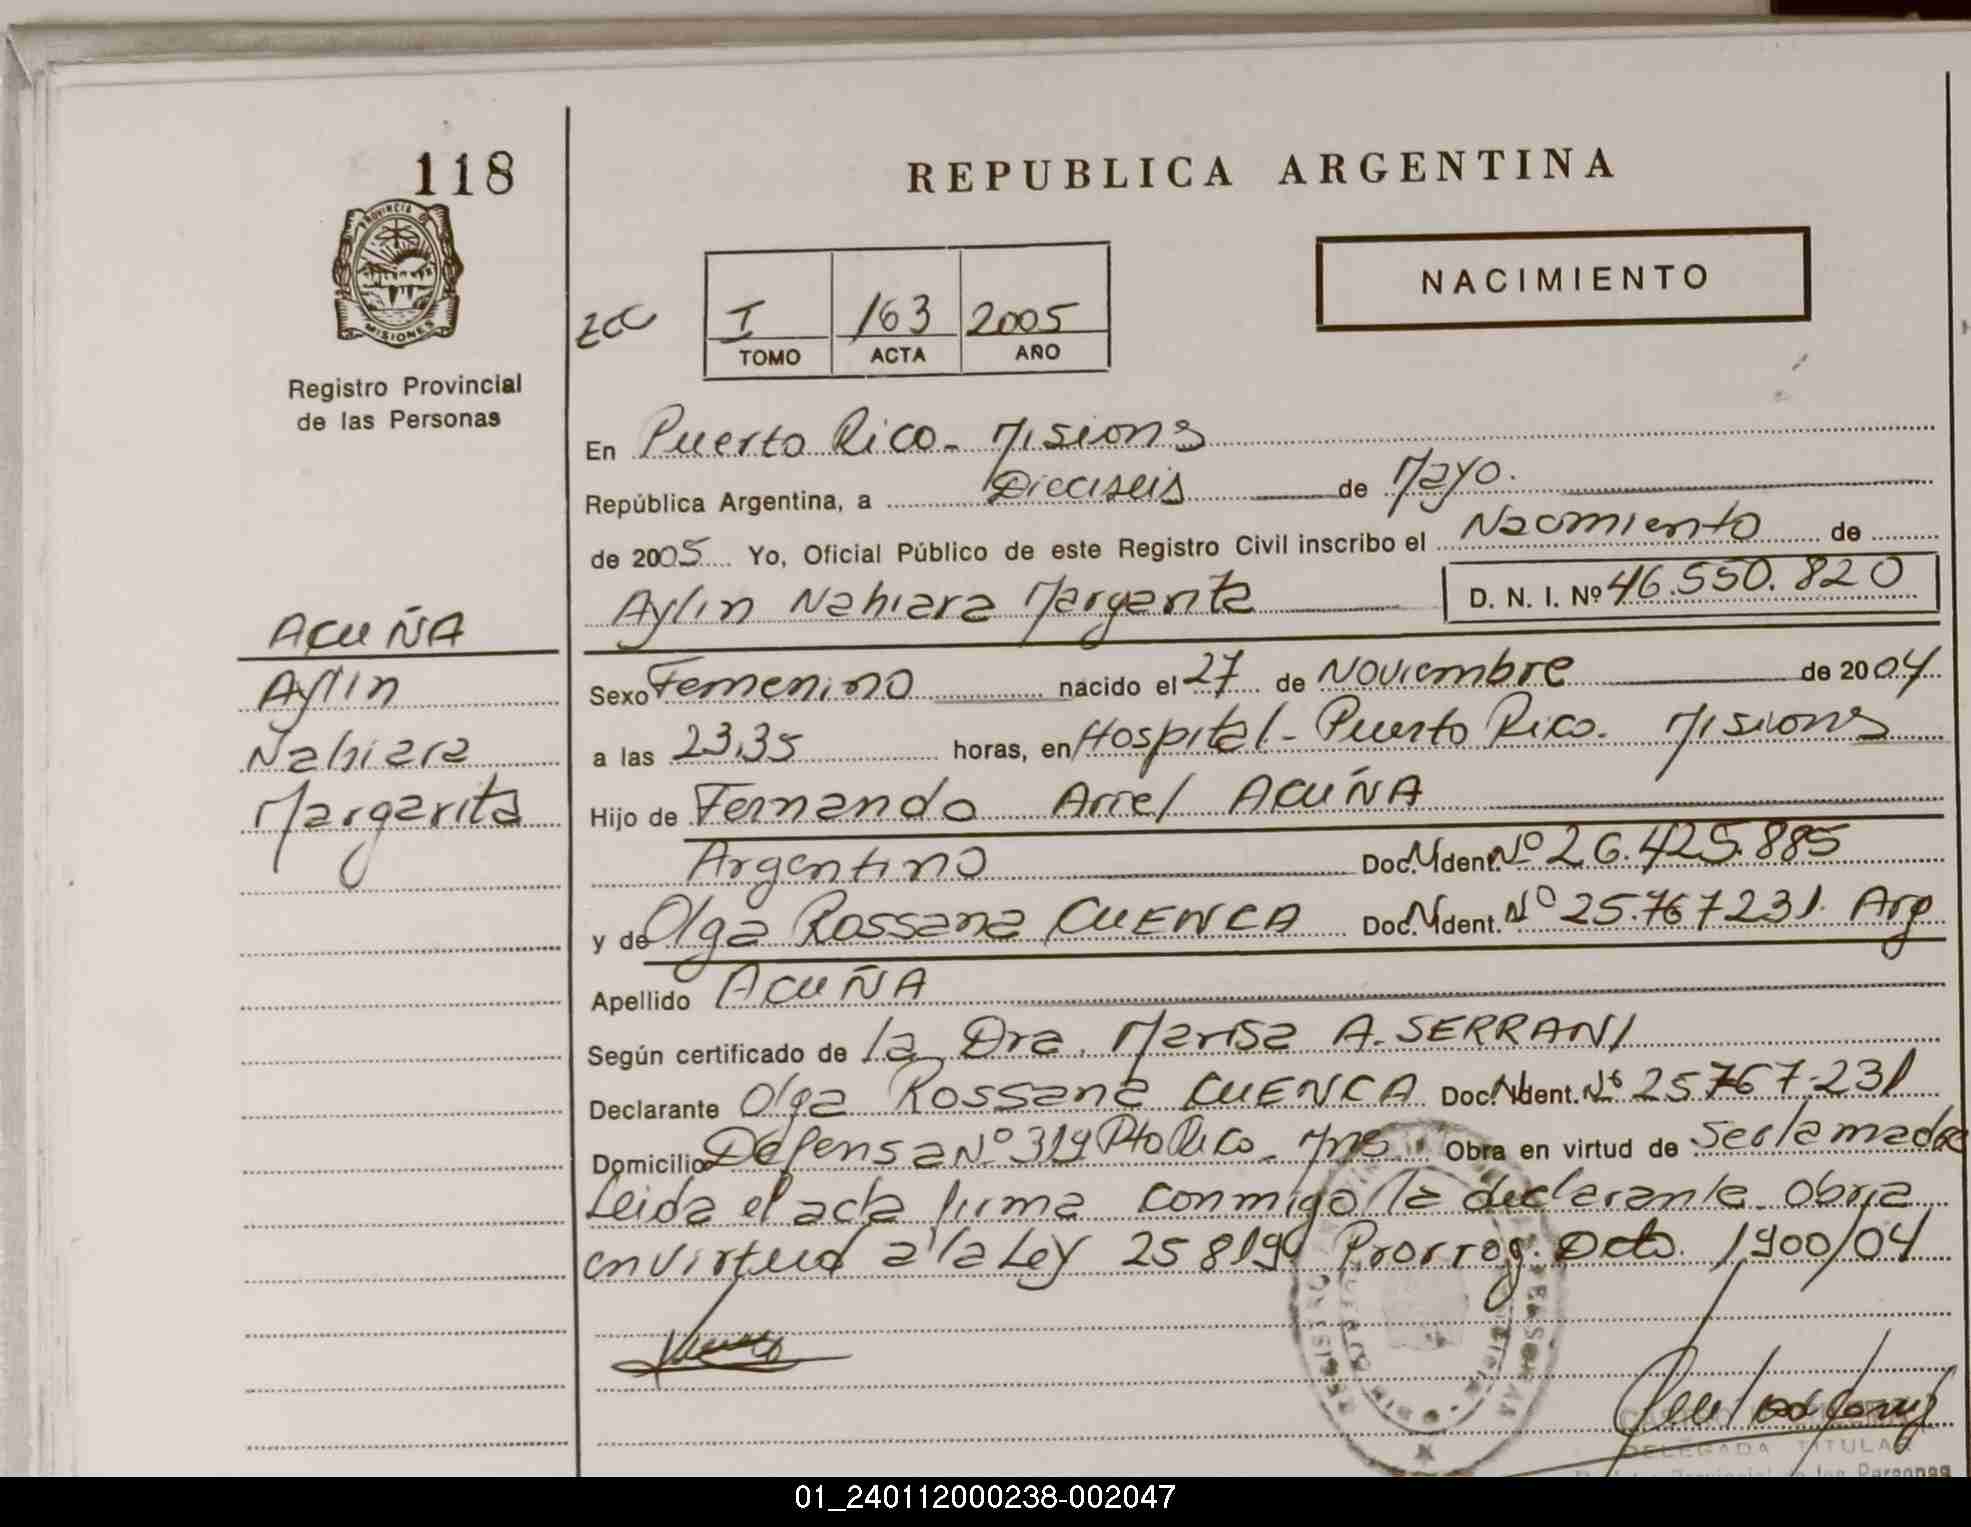 118
REPUBLICA ARGENTINA
PROVINCIA DE
MISIONES
NACIMIENTO
I 163 2005
TOMO ACTA AÑO
Registro Provincial
de las Personas
En Puerto Rico - Misiones
República Argentina, a Dieciseis de Mayo.
de 2005 Yo, Oficial Público de este Registro Civil inscribo el Nacimiento de
Aylin Nahiara Margarita D. N. I. Nº 46.550.820
ACUÑA
Aylin
Nahiara
Margarita
Sexo Femenino nacido el 27 de Noviembre de 2004
a las 23,35 horas, en Hospital - Puerto Rico. Misiones
Hijo de Fernando Ariel ACUÑA
Argentino Doc. Ident. Nº 26.425.885
y de Olga Rossana CUENCA Doc. Ident. Nº 25.767231. Arg
Apellido ACUÑA
Según certificado de la Dra. Marisa A. SERRANI
Declarante Olga Rossana CUENCA Doc. Ident. Nº 25767.231
Domicilio Defensa Nº 319 Pto Rico - Mnes Obra en virtud de ser la madre
Leida el acta firma conmigo la declarante. Obra
en virtud a la Ley 25819 Prorrog. Dcto. 1900/04
DELEGADA TITULAR
Registro Provincial de las Personas
01_240112000238-002047